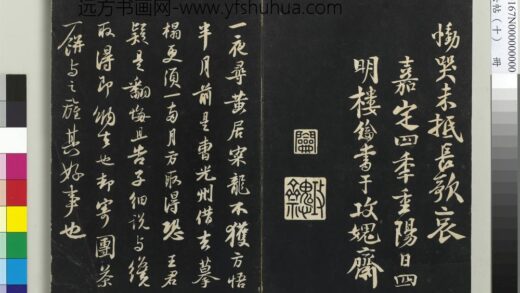 远方书画网-www.yfshuhua.com
167N000000000
帖(十) 册
慟哭未抵長歌哀
嘉定四季重陽日四
明樓鑰書于攻媿齋
一夜尋黃居寀龍不獲方悟
半月前是曹光州借去摹
榻更須一兩月方取得恐王君
疑是翻悔且告子細說與纔
取得即納去也却寄團茶
一餅與之旌其好事也